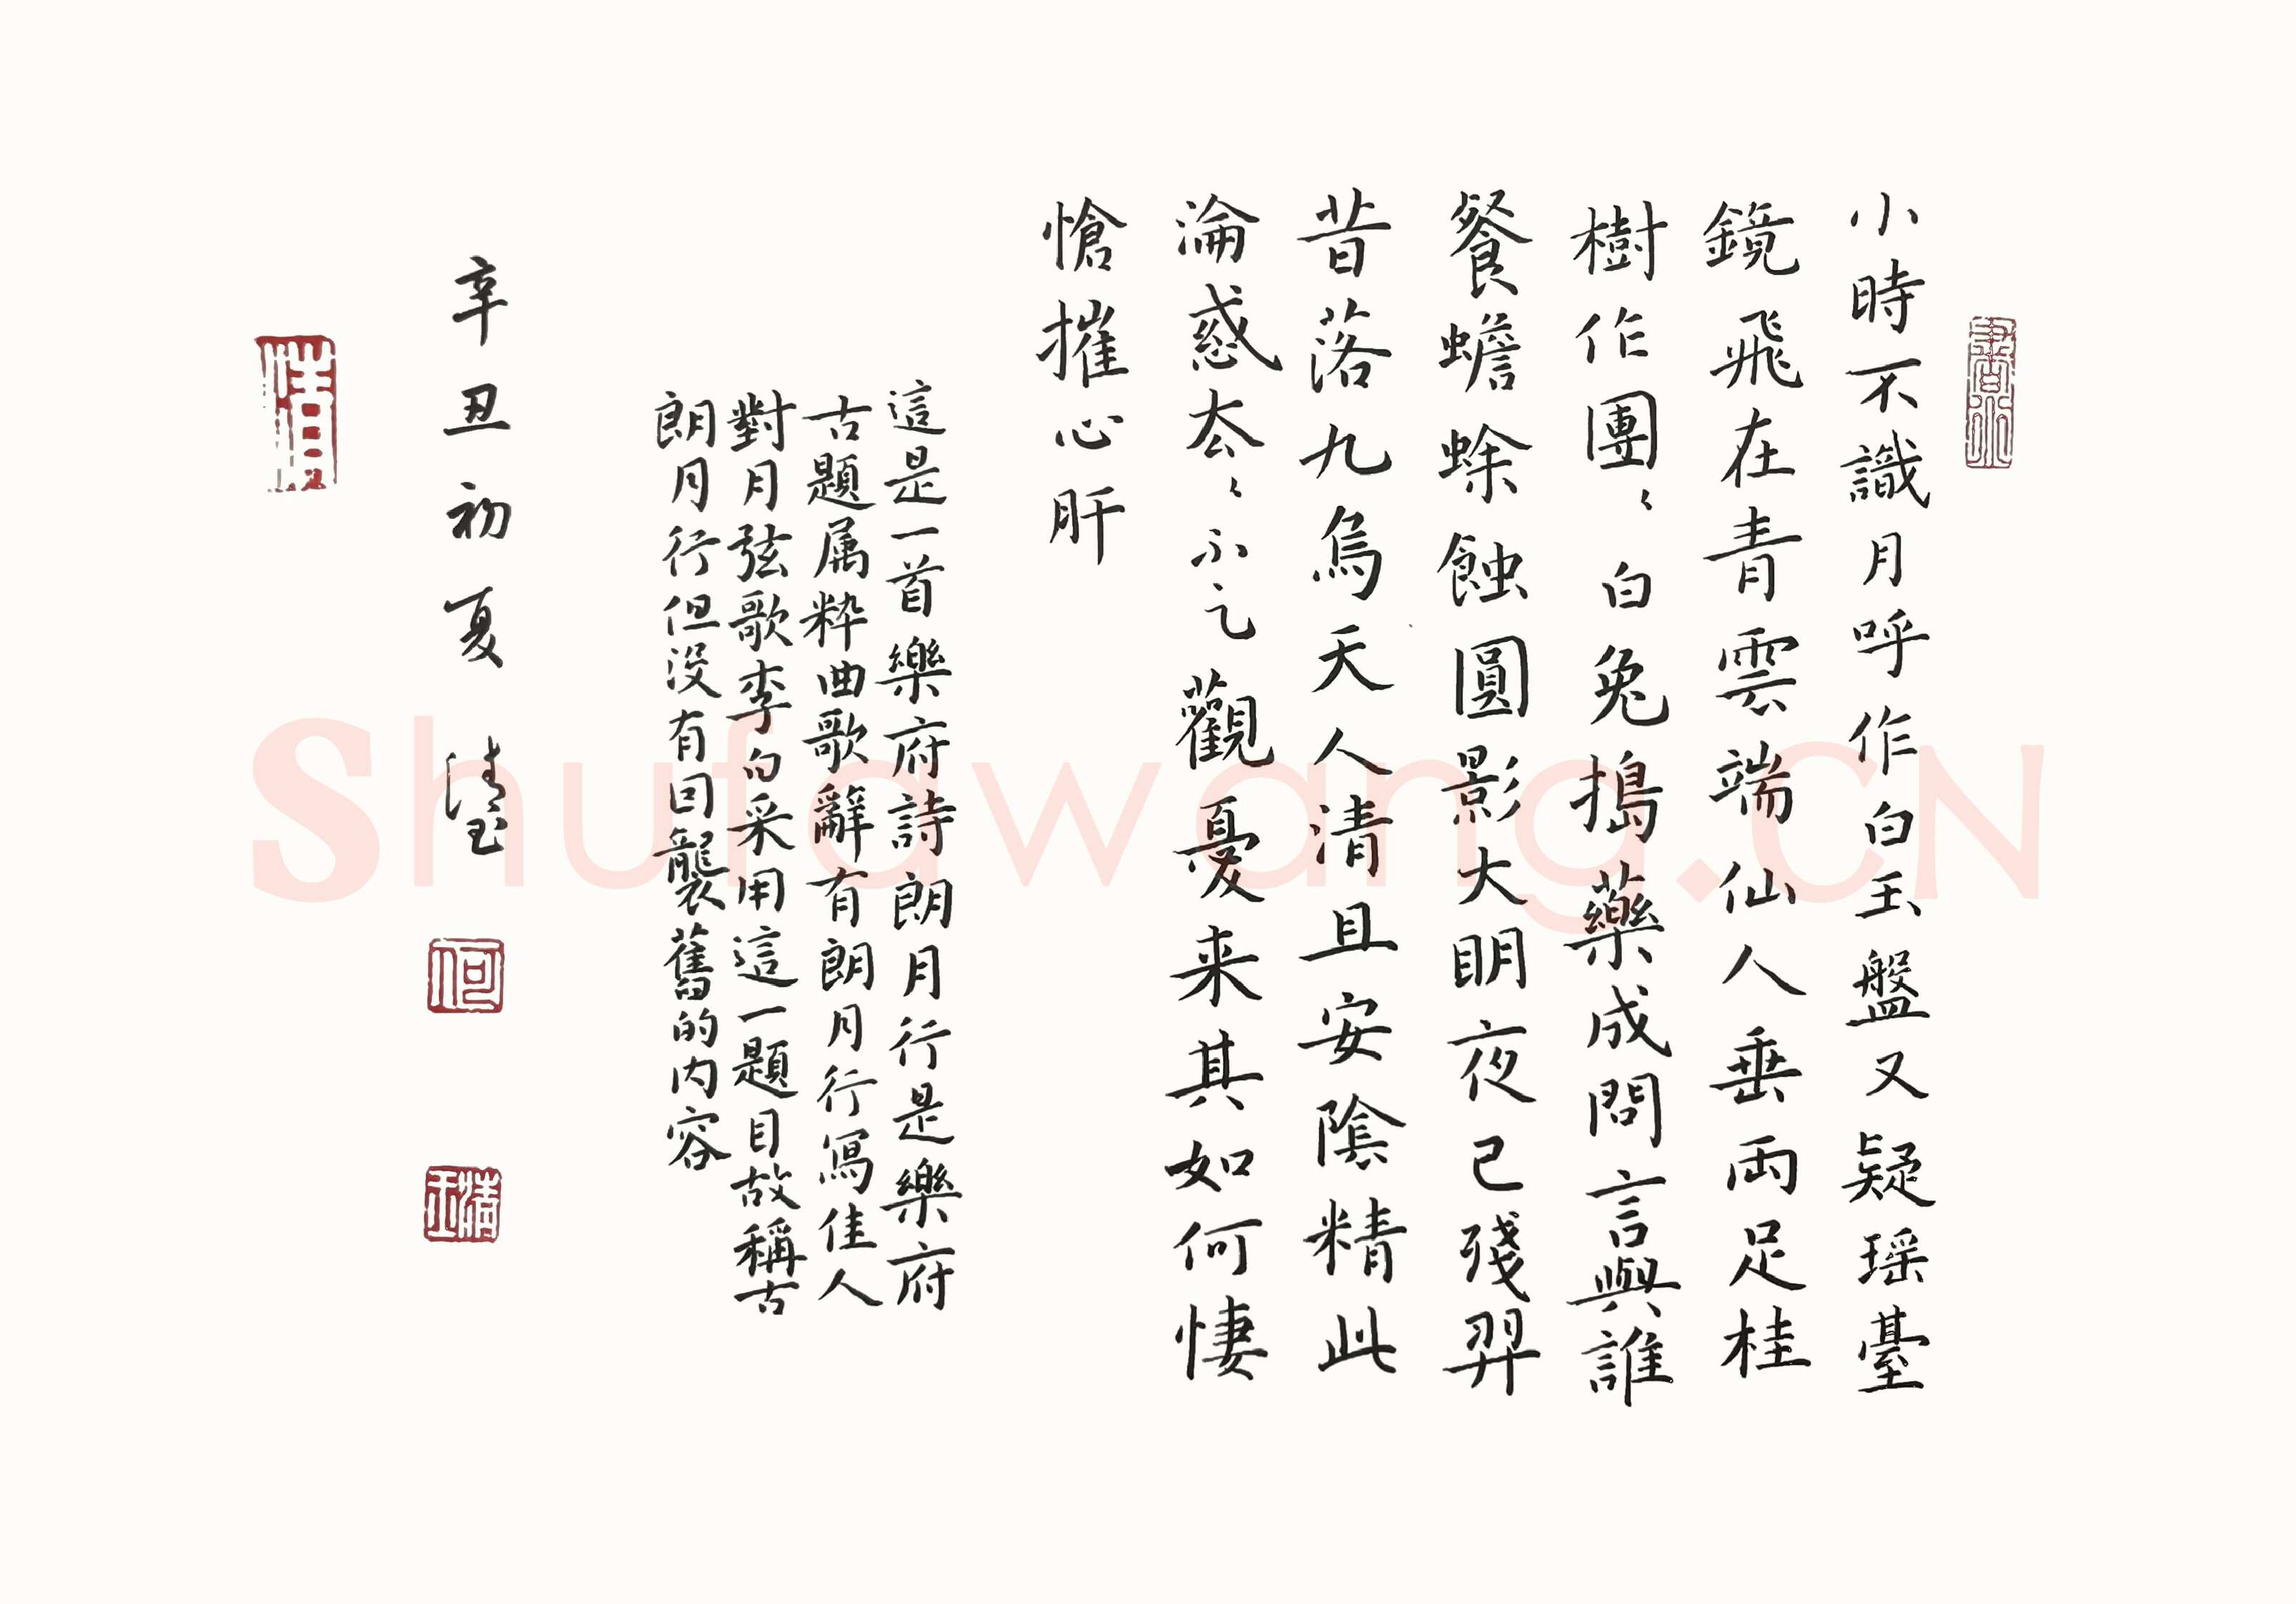 小時不識月呼作白玉盤又疑瑶臺
鏡飛在青雲端仙人垂兩足桂
樹作團〻白兔搗藥成問言與誰
餐蟾蜍蝕圓影大明夜已殘羿
昔落九烏天人清且安陰精此
淪惑去〻不足觀憂来其如何悽
愴摧心肝
這是一首樂府詩朗月行是樂府
古題属粋曲歌辭有朗月行寫佳人
對月弦歌李白采用這一題目故稱古
朗月行但没有回襲舊的内容
辛丑初夏 清玉
何
清玉
Shufawang.CN